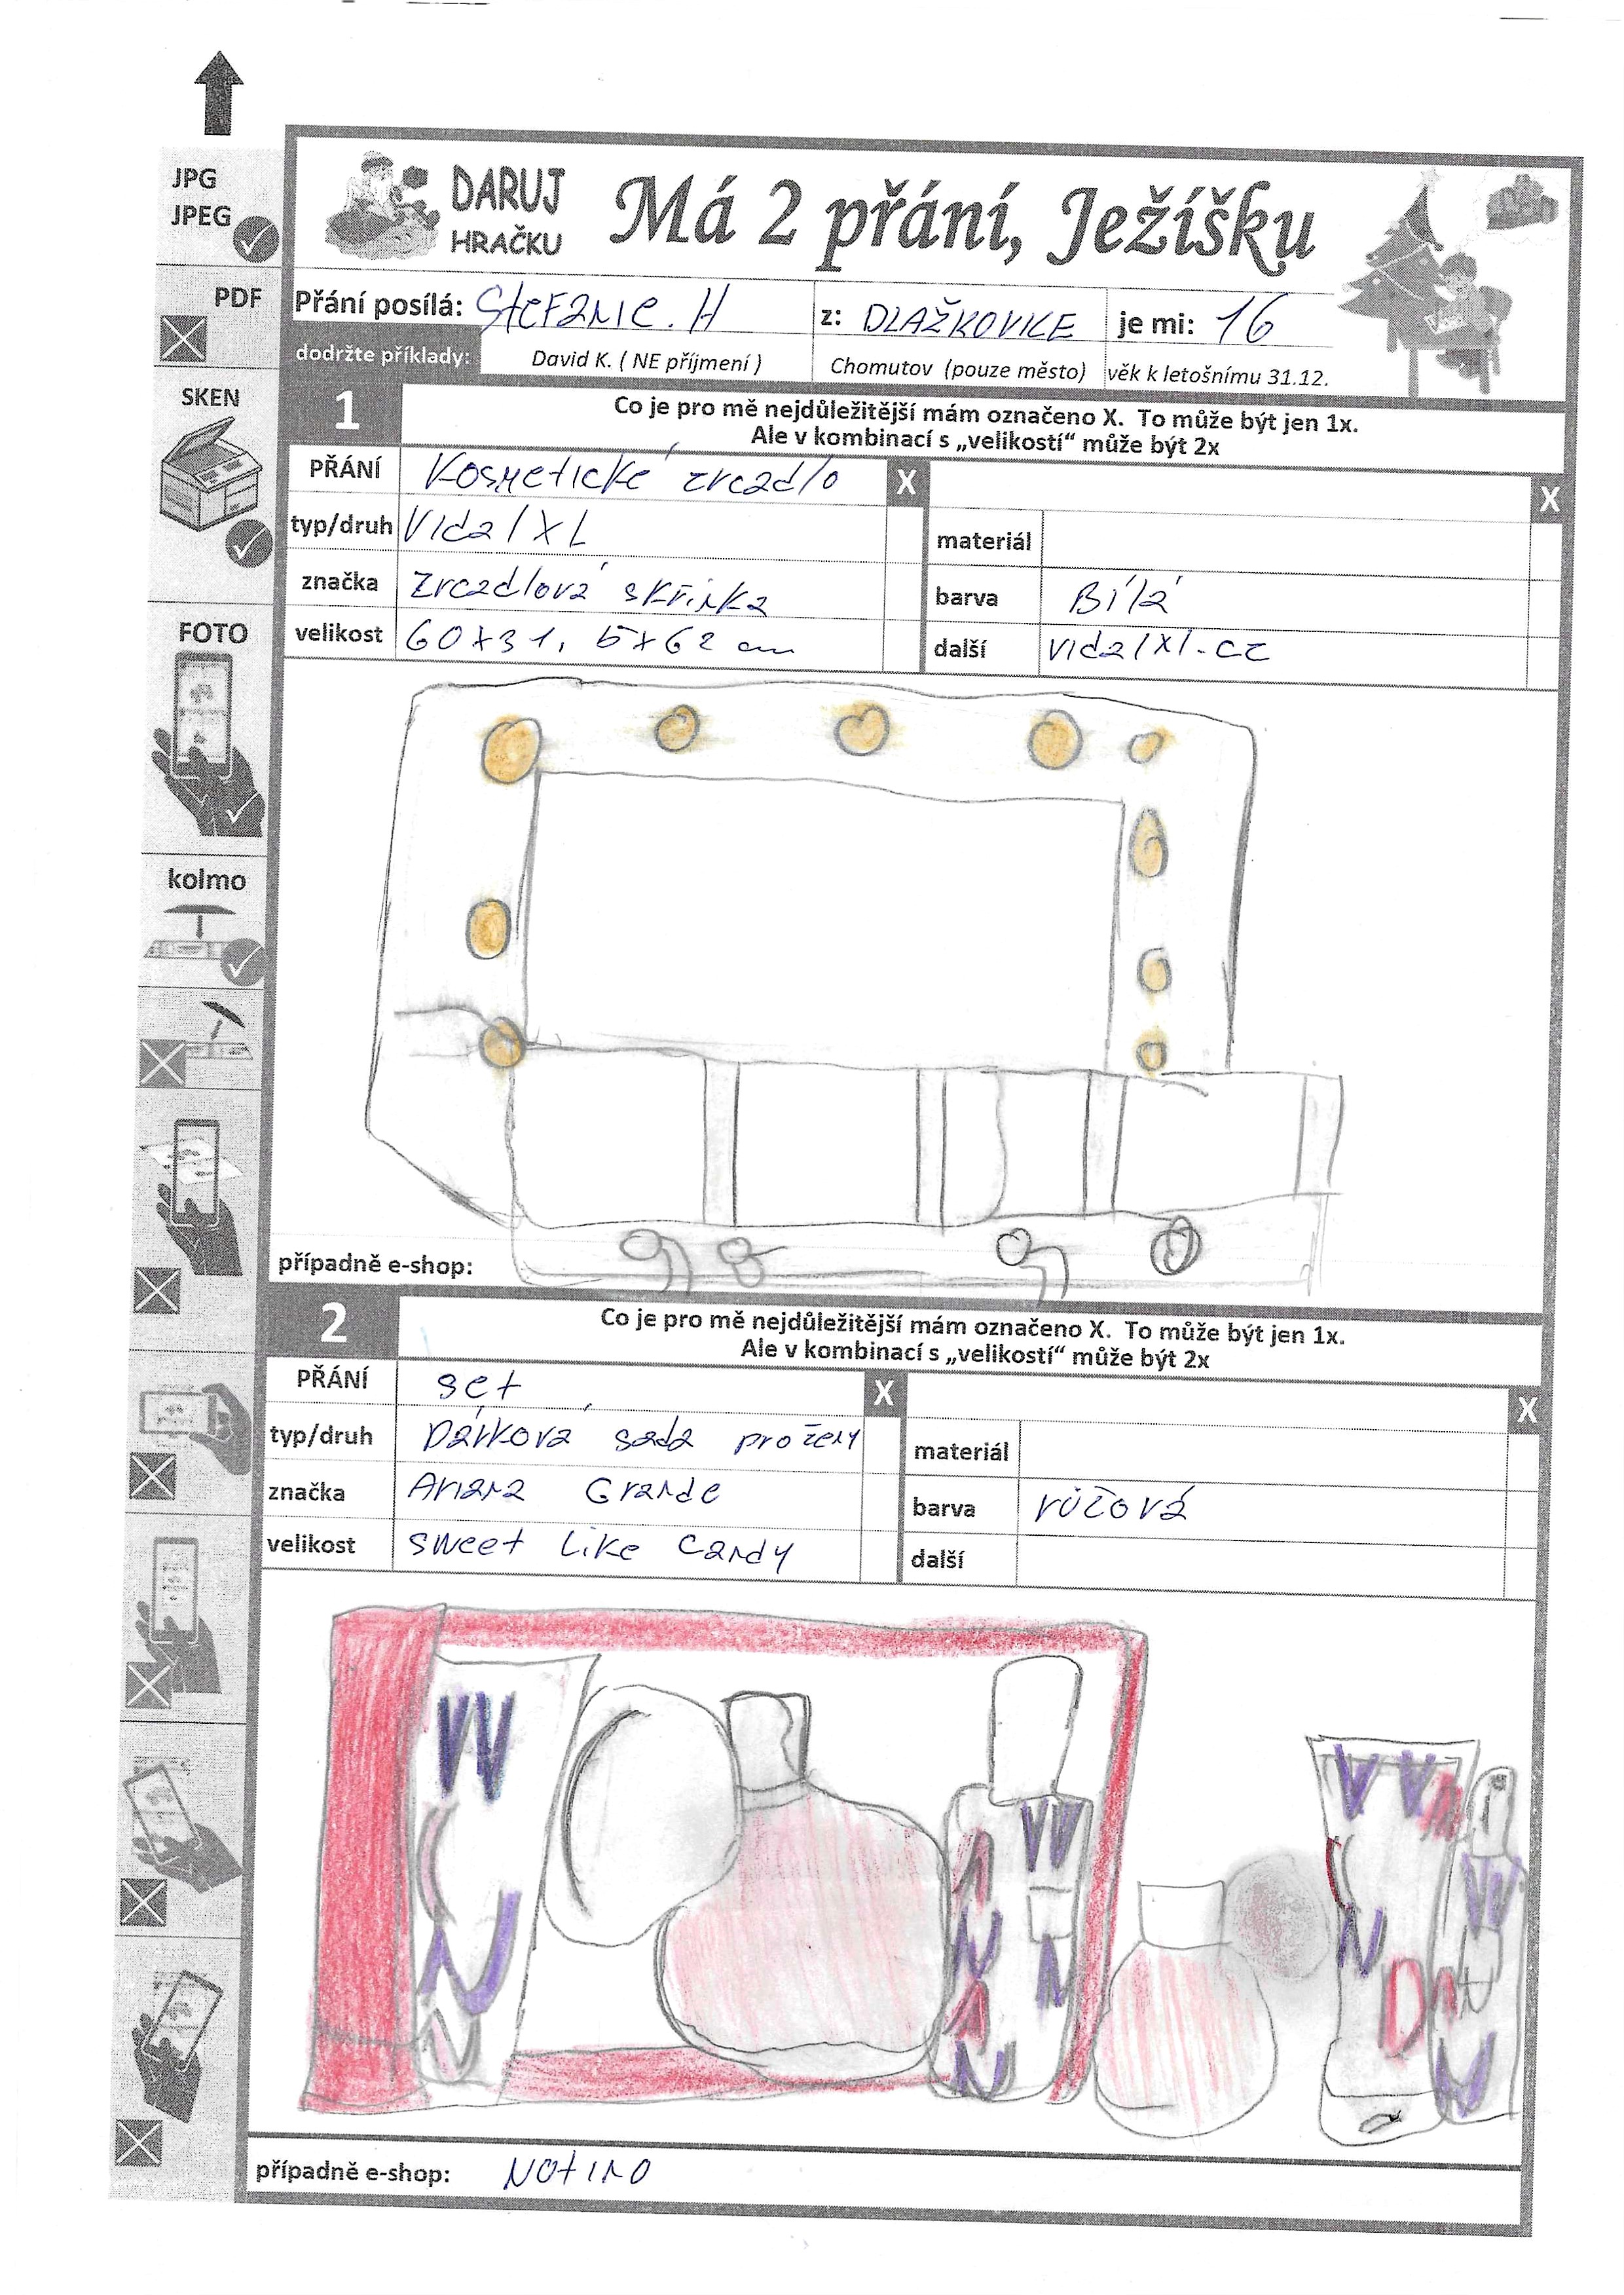 JPG
JPEG
PDF
SKEN
FOTO
kolmo
DARUJ
HRAČKU
Má 2 přání, Ježíšku
Přání posílá: StEFANIE. H z: DLAŽKOVICE je mi: 16
dodržte příklady: David K. ( NE příjmení ) Chomutov (pouze město) věk k letošnímu 31.12.
1 Co je pro mě nejdůležitější mám označeno X. To může být jen 1x.
Ale v kombinací s „velikostí“ může být 2x
PŘÁNÍ Kosmetické zrcadlo X X
typ/druh Vidal XL materiál
značka Zrcadlová skřínka barva Bílá
velikost 60x31,5x62 cm další vidalxl.cz
případně e-shop:
2 Co je pro mě nejdůležitější mám označeno X. To může být jen 1x.
Ale v kombinací s „velikostí“ může být 2x
PŘÁNÍ set X X
typ/druh Dárková sada pro ženy materiál
značka Ariana Grande barva růžová
velikost sweet like candy další
případně e-shop: NOtINO